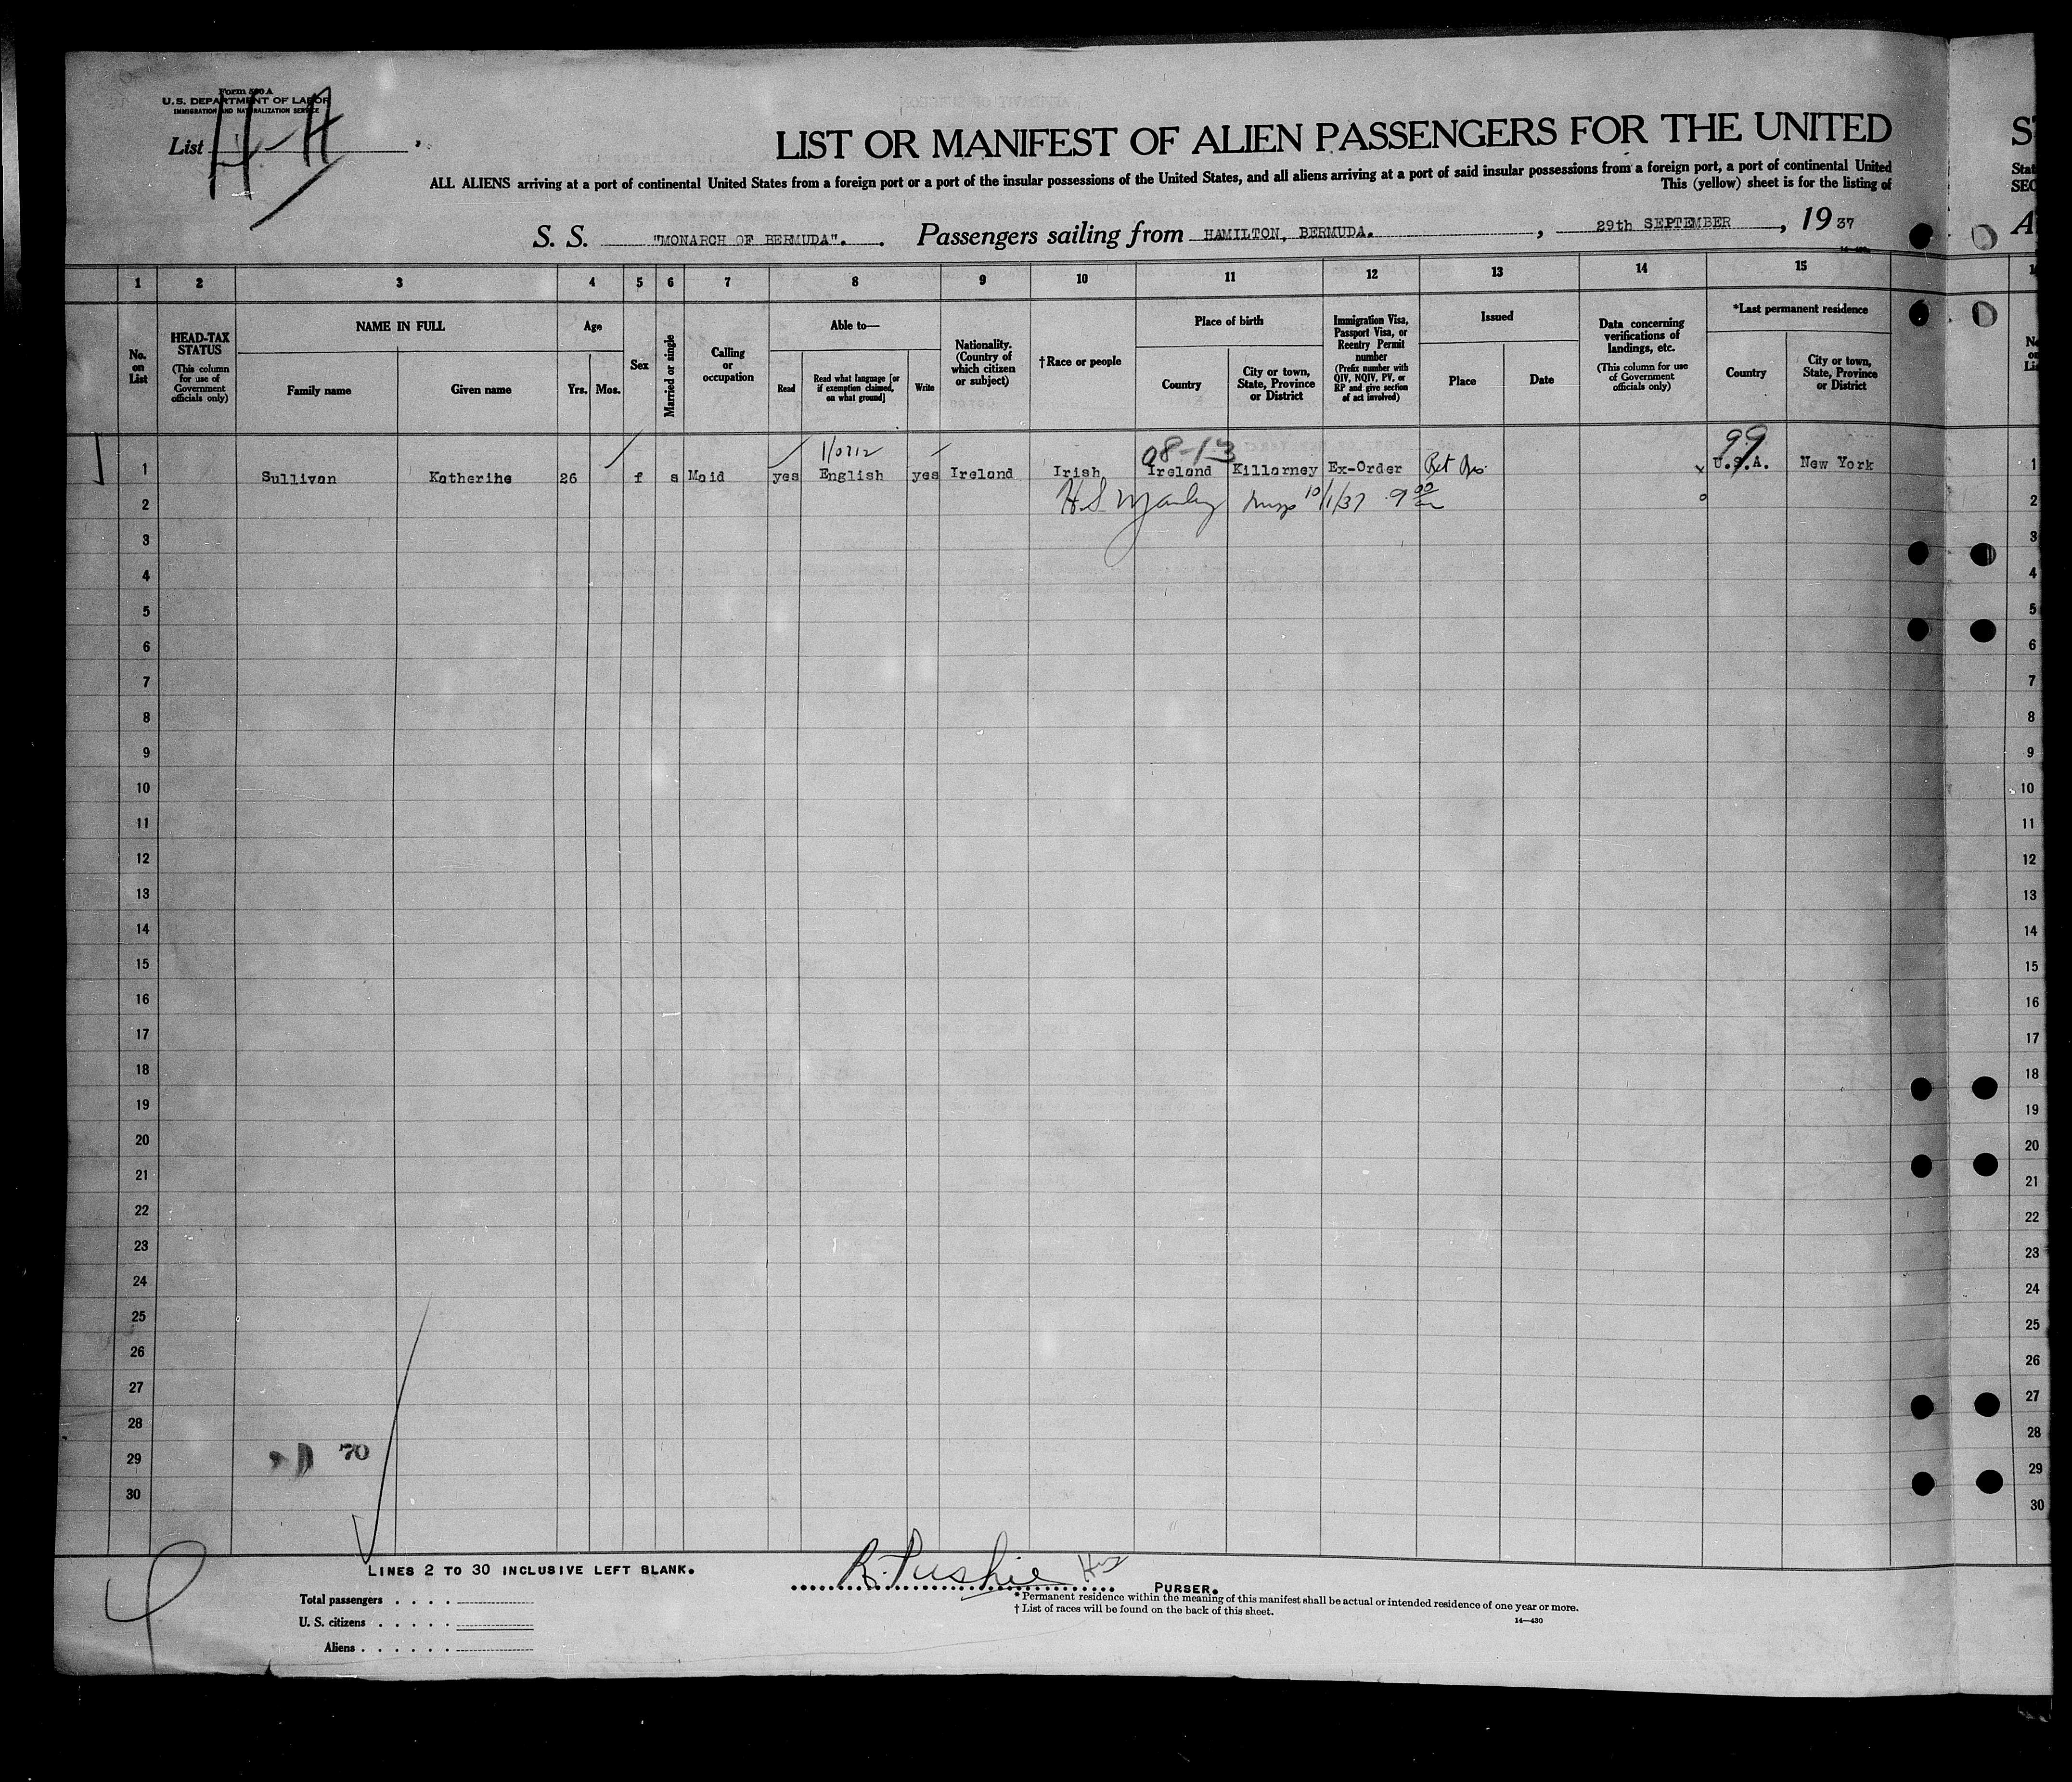 Form 500 A
U.S. DEPARTMENT OF LABOR
IMMIGRATION AND NATURALIZATION SERVICE
List H-H
LIST OR MANIFEST OF ALIEN PASSENGERS FOR THE UNITED
ALL ALIENS arriving at a port of continental United States from a foreign port or a port of the insular possessions of the United States, and all aliens arriving at a port of said insular possessions from a foreign port, a port of continental United
This (yellow) sheet is for the listing of
S. S. "MONARCH OF BERMUDA". Passengers sailing from HAMILTON, BERMUDA. , 29th SEPTEMBER , 19 37
ST
Stat
SEC
A
1 2 3 4 5 6 7 8 9 10 11 12 13 14 15
No. on List
HEAD-TAX STATUS
(This column for use of Government officials only)
NAME IN FULL
Family name Given name
Age
Yrs. Mos.
Sex
Married or single
Calling or occupation
Able to—
Read
Read what language [or if exemption claimed, on what ground]
Write
Nationality. (Country of which citizen or subject)
†Race or people
Place of birth
Country
City or town, State, Province or District
Immigration Visa, Passport Visa, or Reentry Permit number
(Prefix number with QIV, NQIV, PV, or RP and give section of act involved)
Issued
Place Date
Data concerning verifications of landings, etc.
(This column for use of Government officials only)
*Last permanent residence
Country
City or town, State, Province or District
08-13 99
1 Sullivan Katherine 26 f s Maid yes English yes Ireland Irish Ireland Killarney Ex-Order U.S.A. New York 1
2 10/1/37 2
3 3
4 4
5 5
6 6
7 7
8 8
9 9
10 10
11 11
12 12
13 13
14 14
15 15
16 16
17 17
18 18
19 19
20 20
21 21
22 22
23 23
24 24
25 25
26 26
27 27
28 28
29 70 29
30 30
LINES 2 TO 30 INCLUSIVE LEFT BLANK.
R. Pushie PURSER.
Total passengers . . . .
U. S. citizens . . . . .
Aliens . . . . . .
*Permanent residence within the meaning of this manifest shall be actual or intended residence of one year or more.
† List of races will be found on the back of this sheet.
14—430